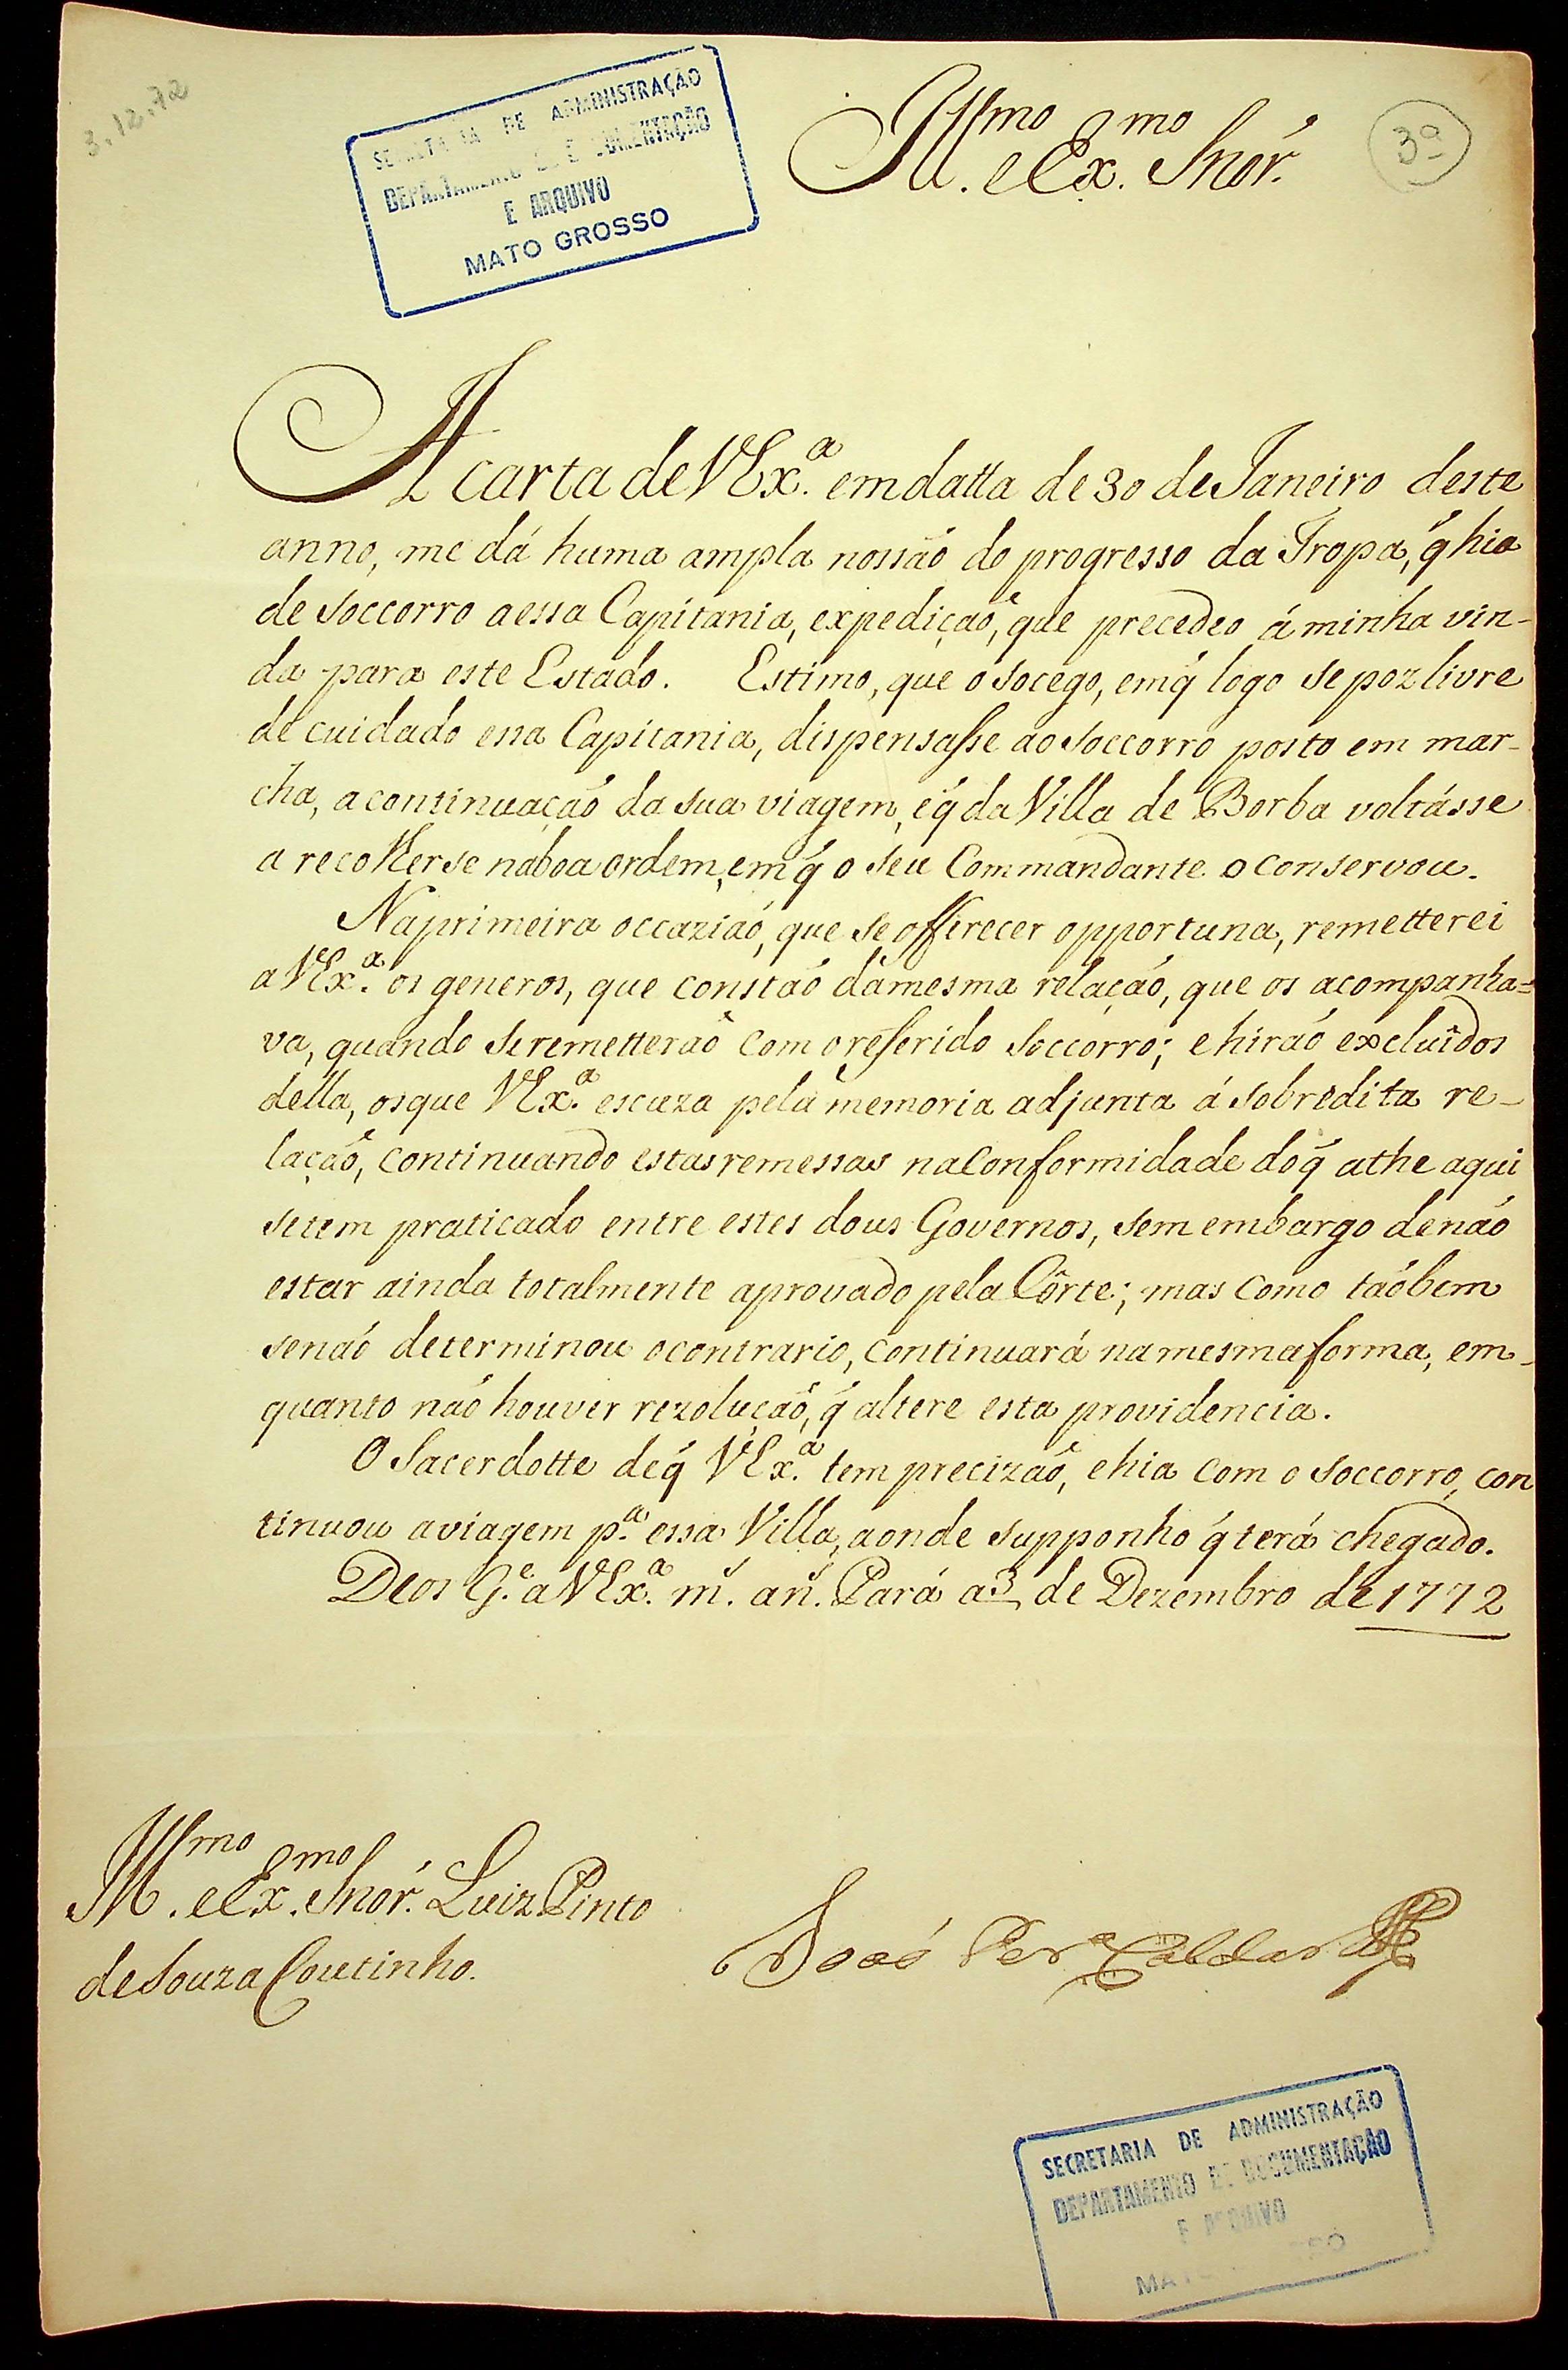 3.12.72
SECRETARIA DE ADMINISTRAÇÃO
DEPARTAMENTO DE DOCUMENTAÇÃO
E ARQUIVO
MATO GROSSO
Ill.mo e Ex.mo Snór.
3ª
A carta de VEx.ª em datta de 30 de Janeiro deste
anno, me dá huma ampla nossaõ do progresso da Tropa, q̃ hia
de soccorro a essa Capitania, expediçaõ, que precedeo á minha vin-
da para este Estado. Estimo, que o socego, em q̃ logo se poz livre
de cuidado essa Capitania, dispensasse ao soccorro posto em mar-
cha, a continuaçaõ da sua viagem, e q̃ da Villa de Borba voltásse
a recolherse na boa ordem, em q̃ o seu Commandante o conservou.
Na primeira occaziaõ, que se offerecer opportuna, remetterei
a VEx.ª os generos, que constaõ da mesma relaçaõ, que os acompanha=
va, quando se remetteraõ com o referido soccorro; e hiraõ excluîdos
della, os que VEx.ª escuza pela memoria adjunta á sobredita re-
laçaõ, continuando estas remessas na conformidade do q̃ athe aqui
se tem praticado entre estes dous Governos, sem embargo de naõ
estar ainda totalmente aprovado pela Côrte; mas como taõbem
se naõ determinou o contrario, continuará na mesma forma, em-
quanto naõ houver rezoluçaõ, q̃ altere esta providencia.
O Sacerdotte de q̃ VEx.ª tem precizaõ, e hia com o soccorro, con
tinuou a viagem p.ª essa Villa, aonde supponho q̃ terá chegado.
Deos G.e a VEx.ª m.s an.s Pará a 3 de Dezembro de 1772
Ill.mo e Ex.mo Snór. Luiz Pinto
de Souza Coutinho.
Joaõ Per.ª Caldas
SECRETARIA DE ADMINISTRAÇÃO
DEPARTAMENTO DE DOCUMENTAÇÃO
E ARQUIVO
MATO GROSSO